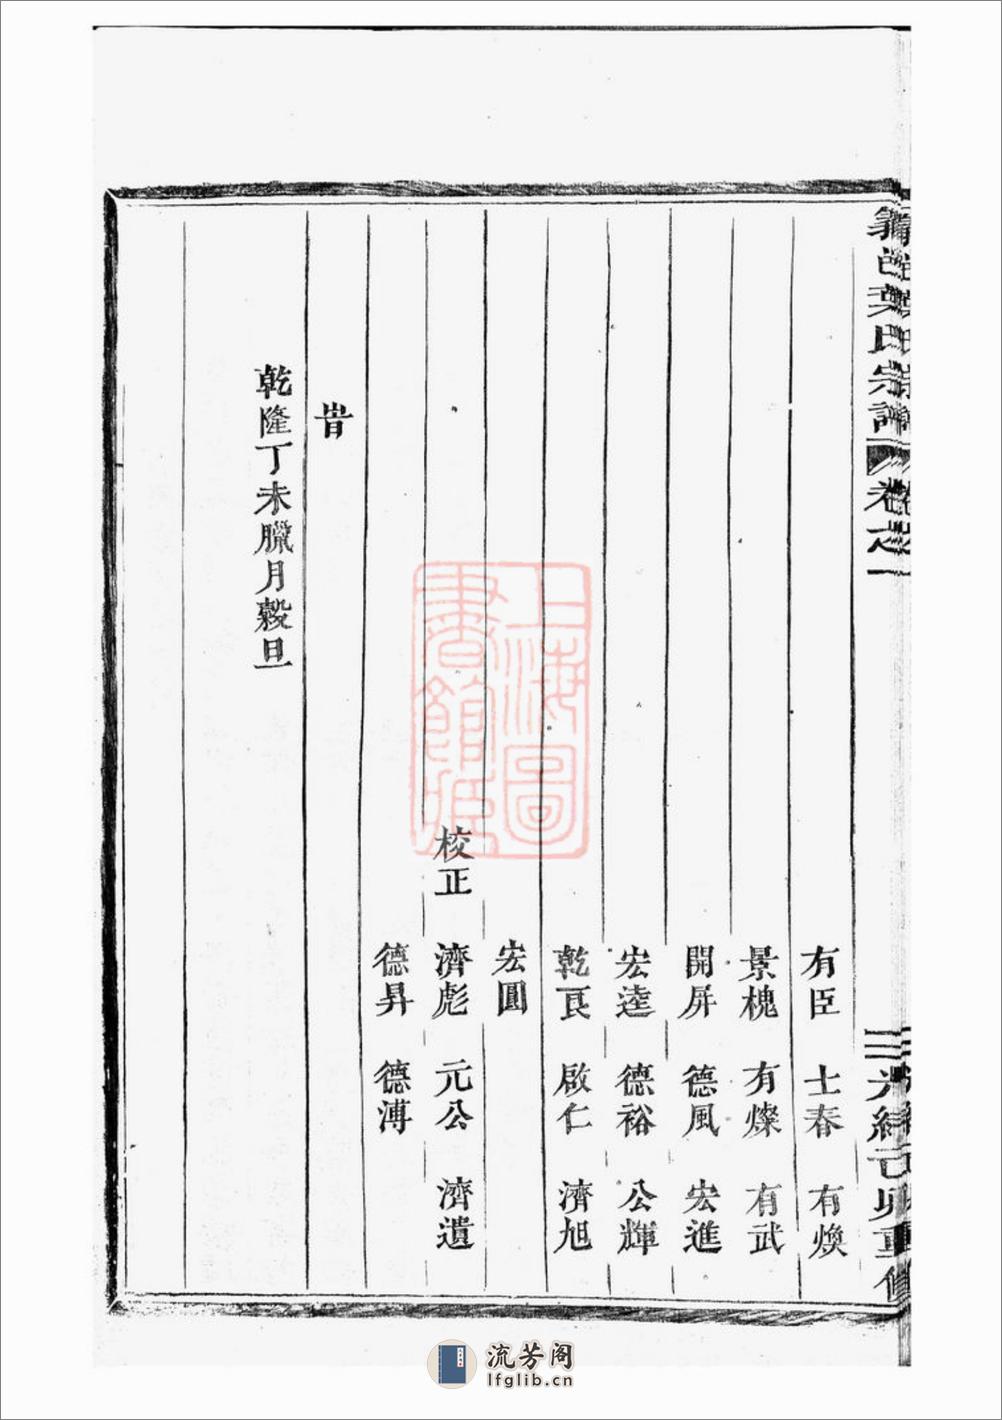 邑葉氏宗譜 卷之一 光緒己卯重修
有臣 士春 有煥
景槐 有燦 有武
開屏 德風 宏進
宏逵 德裕 公輝
乾艮 啟仁 濟旭
宏圓
校正 濟彪 元公 濟遺
德昇 德溥
旹
乾隆丁未臘月穀旦
上海圖
書館藏
流芳阁
lfglib.cn